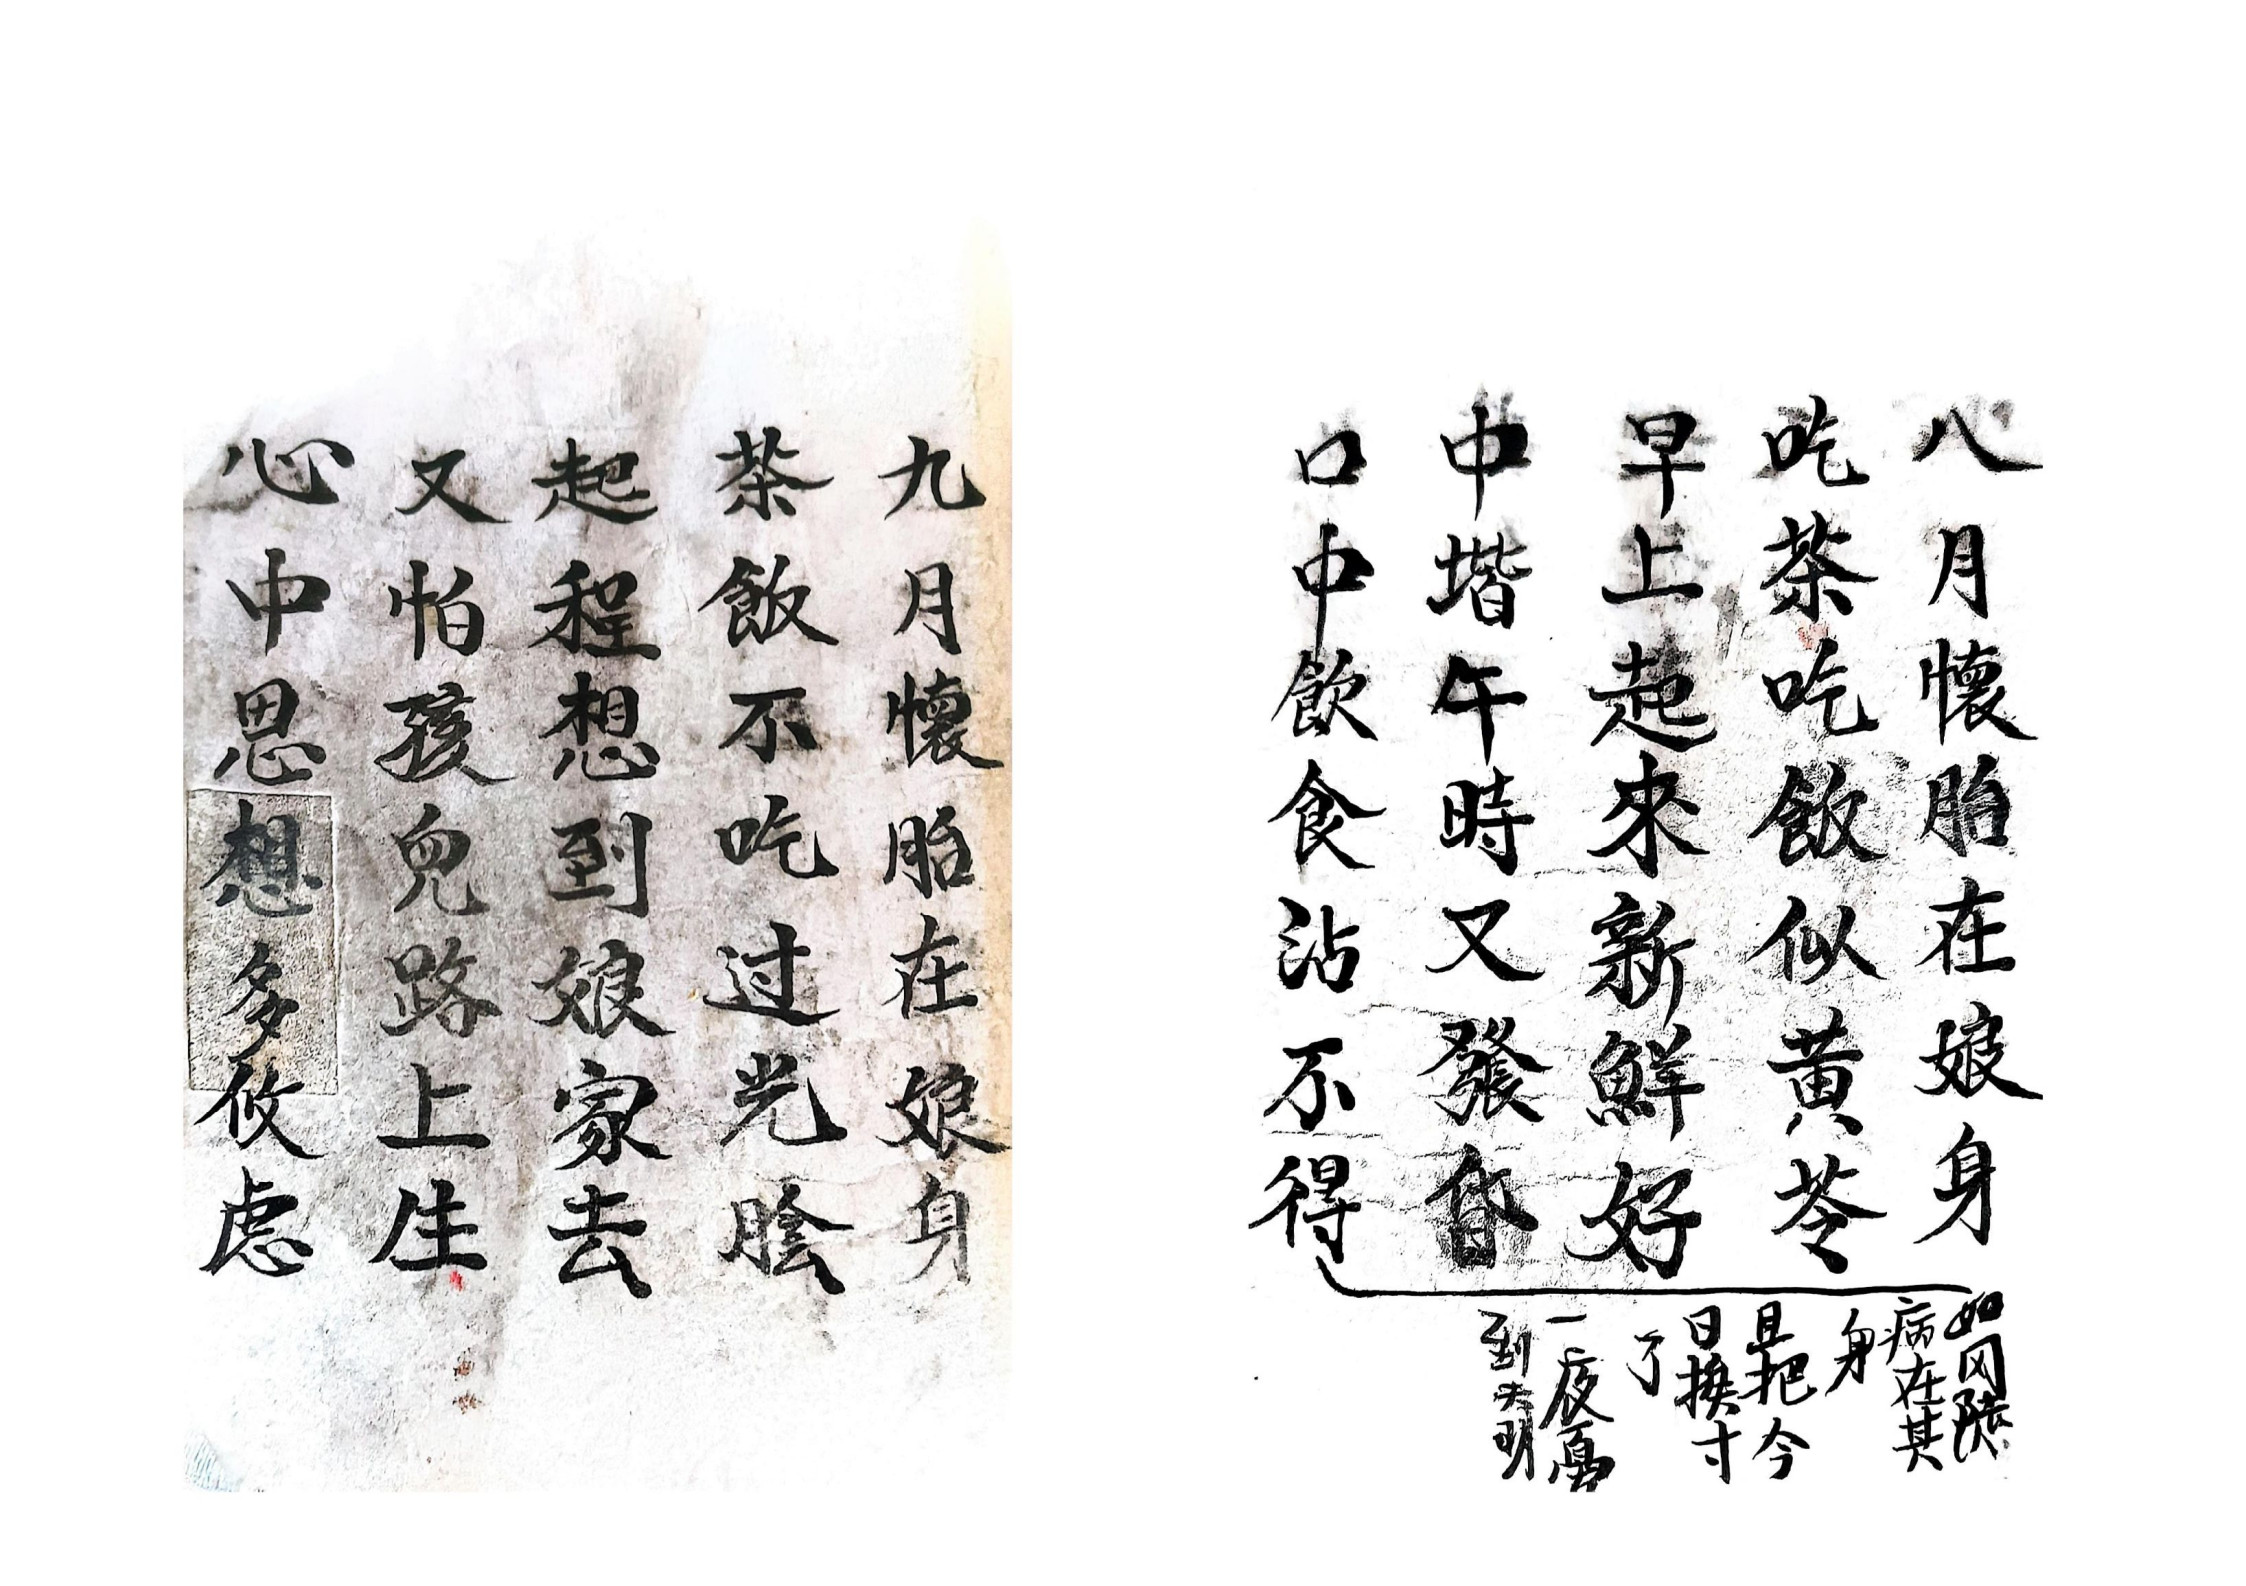 八月懷胎在娘身
吃茶吃飯似黃苓
早上起來新鮮好
中堦午時又發昏
口中飲食沾不得
如冈陸
病在其
身
且把今
日換寸
了
一夜
到天明
九月懷胎在娘身
茶飯不吃过光陰
起程想到娘家去
又怕孩兒路上生
心中思想多攸慮